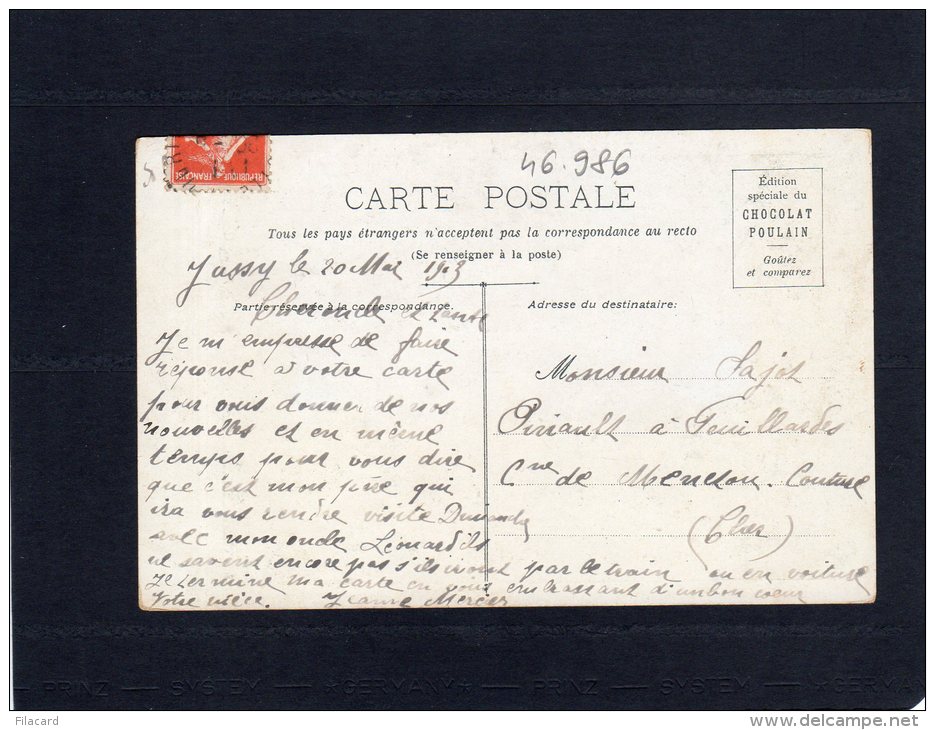 46.986
REPUBLIQUE FRANÇAISE
CARTE POSTALE
Tous les pays étrangers n'acceptent pas la correspondance au recto
(Se renseigner à la poste)
Édition
spéciale du
CHOCOLAT
POULAIN
Goûtez
et comparez
Jussy le 20 Mai
Partie réservée à la correspondance.
Adresse du destinataire:
Cher oncle et tante
Je m'empresse de faire
réponse a votre carte
pour vous donner de nos
nouvelles et en même
temps pour vous dire
que c'est mon père qui
ira vous rendre visite Dimanche
avec mon oncle Léonard ils
ne savent encore pas s'ils iront par le train ou en voiture
Je termine ma carte en vous embrassant d'un bon coeur
Votre nièce. Jeanne Mercier
Monsieur Sajot
Pinault à Feuillardes
Cne de Menetou-Couture
(Cher)
PRINZ SYSTEM GERMANY PRINZ SYSTEM GERMA
Filacard
www.delcampe.net